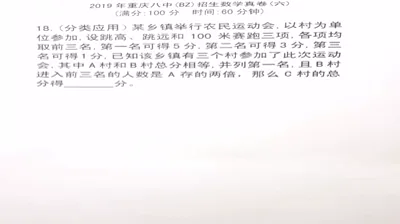 2019年重庆八中(BZ)招生数学真卷(六)
(满分:100分 时间:60分钟)
18.(分类应用)某乡镇举行农民运动会,以村为单
位参加,设跳高、跳远和100米赛跑三项,各项均
取前三名,第一名可得5分,第二名可得3分,第三
名可得1分,已知该乡镇有三个村参加了此次运动
会,其中A村和B村总分相等,并列第一名,且B村
进入前三名的人数是A存的两倍,那么C村的总
分得________分。